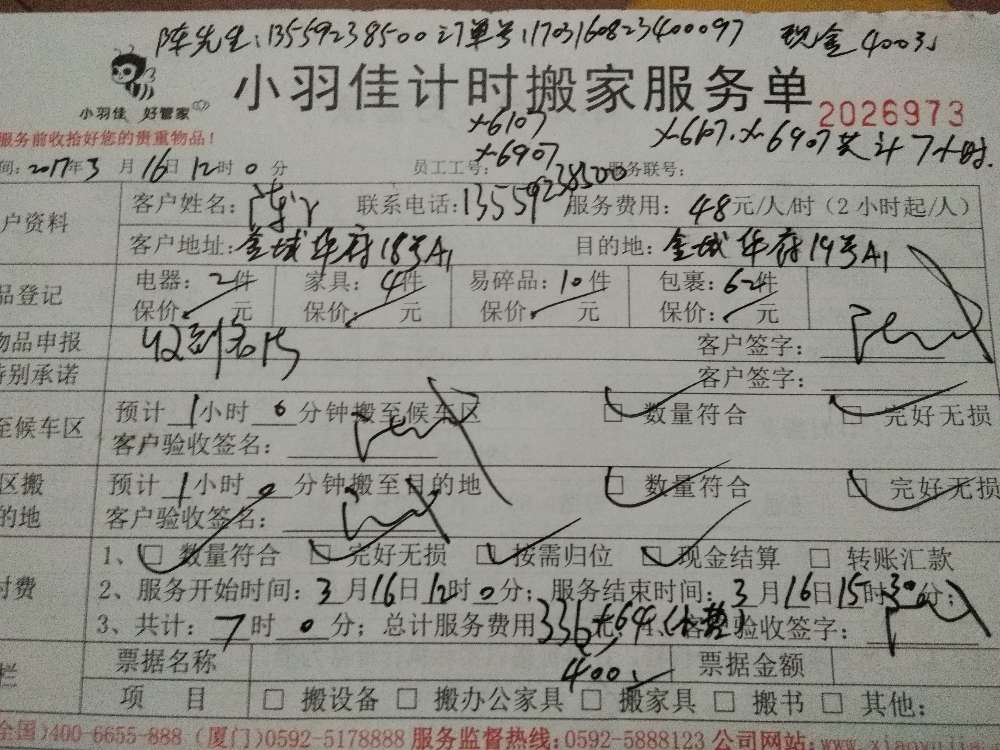 陈先生:13559238500 订单号:1703160823400097 现金400元
小羽佳 好管家
小羽佳计时搬家服务单
2026973
服务前收拾好您的贵重物品!
X-6107
X-6907
X-6107.X-6907共计7小时.
间:2017年3月16日12时0分 员工工号: 服务联号:
户资料 客户姓名:陈 联系电话:13559238500 服务费用:48元/人/时(2小时起/人)
客户地址:金域华府18号A1 目的地:金域华府19号A1
品登记 电器:2件 家具:4件 易碎品:10件 包裹:62件
保价: 元 保价: 元 保价: 元 保价: 元
物品申报 客户签字:
特别承诺 客户签字:
至候车区 预计1小时0分钟搬至候车区 □ 数量符合 □ 完好无损
客户验收签名:
区搬 预计1小时0分钟搬至目的地 □ 数量符合 □ 完好无损
的地 客户验收签名:
1、□ 数量符合 □ 完好无损 □ 按需归位 □ 现金结算 □ 转账汇款
付费 2、服务开始时间:3月16日12时0分;服务结束时间:3月16日15时30分;
3、共计:7时0分;总计服务费用336+64(小垫)元 4、客户验收签字:
400
栏 票据名称 票据金额
项 目 □ 搬设备 □ 搬办公家具 □ 搬家具 □ 搬书 □ 其他:
全国)400-6655-888 (厦门)0592-5178888 服务监督热线:0592-5888123 公司网站:www.xiao